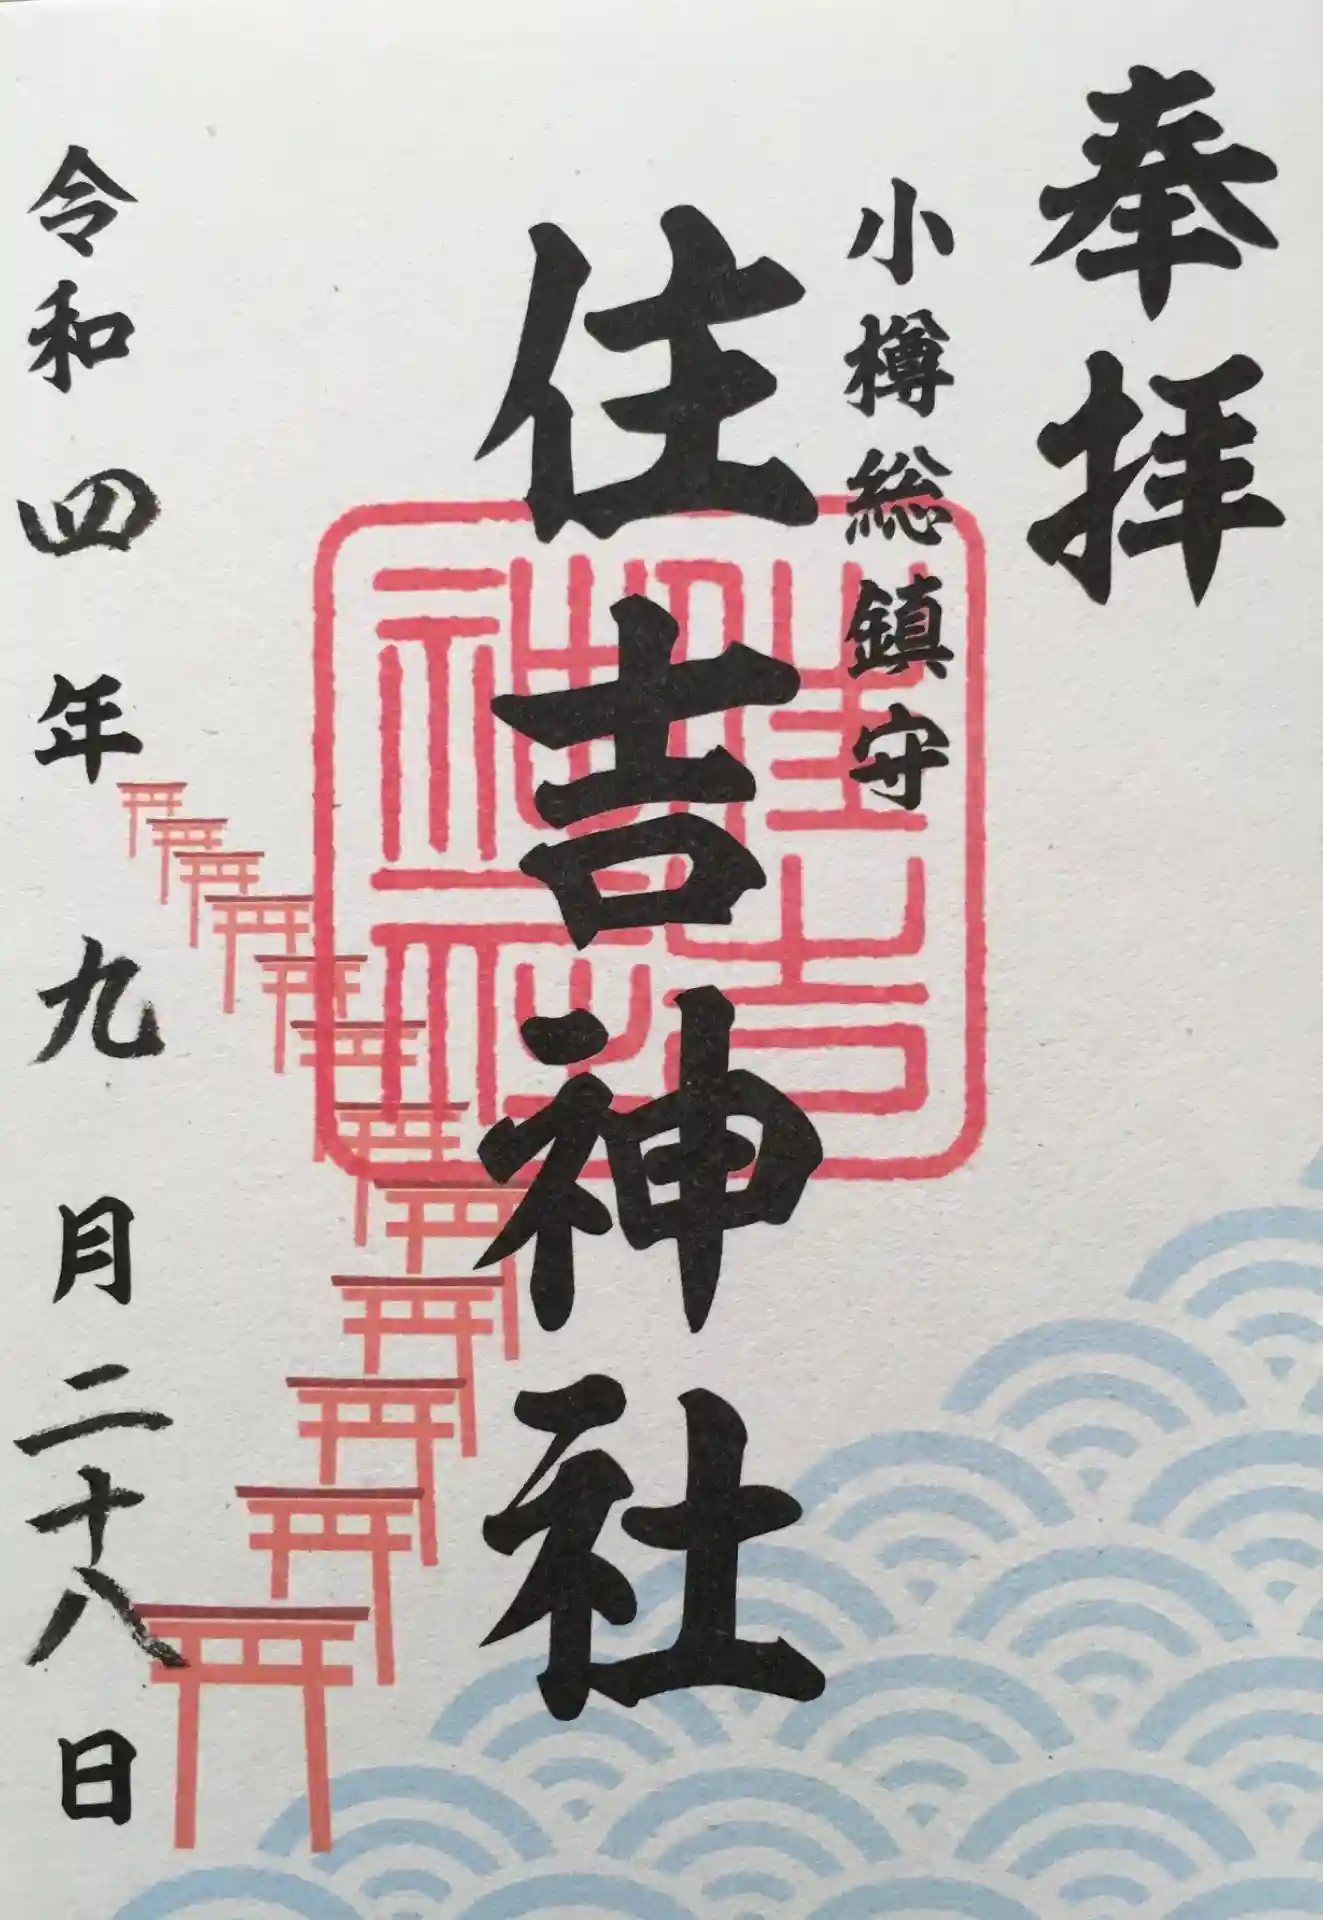 奉拝
小樽総鎮守
住吉神社
住吉
神社
令和四年九月二十八日